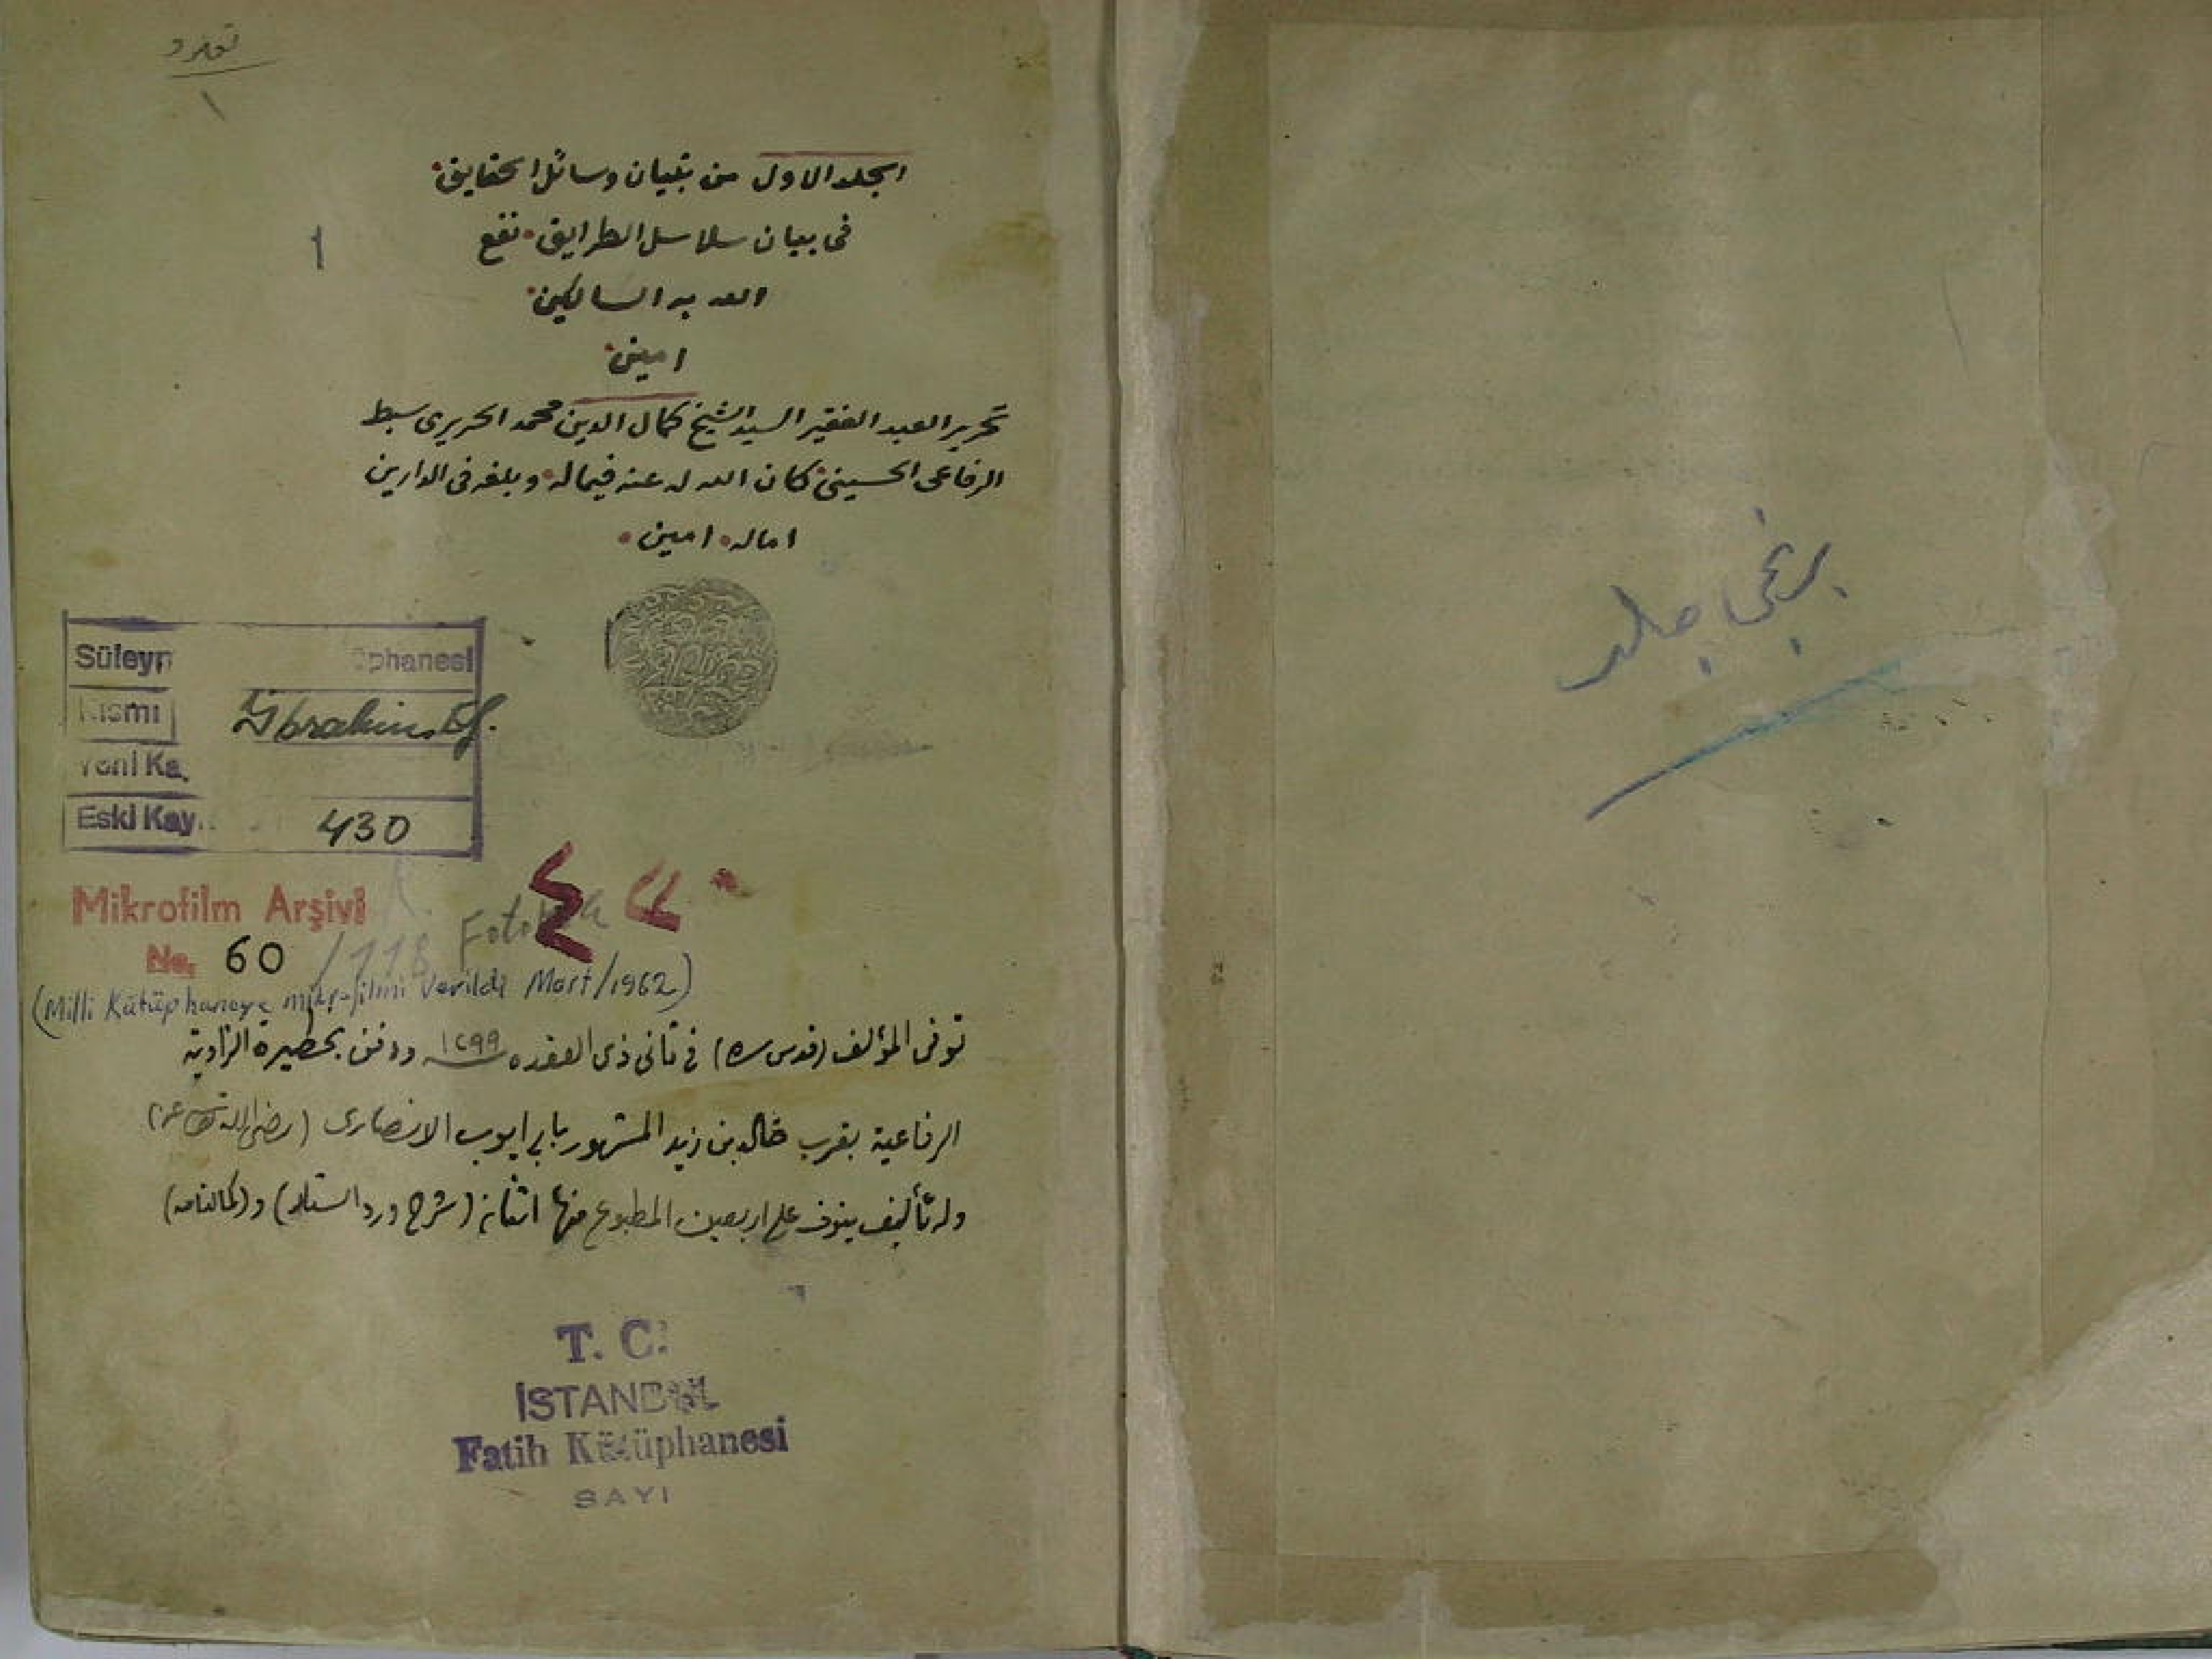 برنجى جلد
١
الجلد الاول من تبيان وسائل الحقايق
فى بيان سلاسل الطرايق نفع
الله به السالكين
امين
1
تحرير العبد الفقير السيد الشيخ كمال الدين محمد الحريرى سبط
الرفاعى الحسينى كان الله له عنه فيماله وبلغه فى الدارين
اماله امين
Süleym üphanesi
Kısmı İbrahim Ef.
Yeni Ka.
Eski Kay. 430
٤٣٠
Mikrofilm Arşivi
No. 60
/118 Fotokopi
(Milli Kütüphaneye mikrofilmi verildi Mart/1962)
توفى المؤلف (قدس سره) فى ثانى ذى القعده سنه ١٢٩٩ ودفن بحظيرة الزاوية
الرفاعية بقرب خالد بن زيد المشهور بابى ايوب الانصارى (رضى الله تعالى عنه)
وله تأليف ينوف على اربعين المطبوع منها اثنان (شرح ورد الستار) و(كمالنامه)
T. C.
İSTANBUL
Fatih Kütüphanesi
SAYI